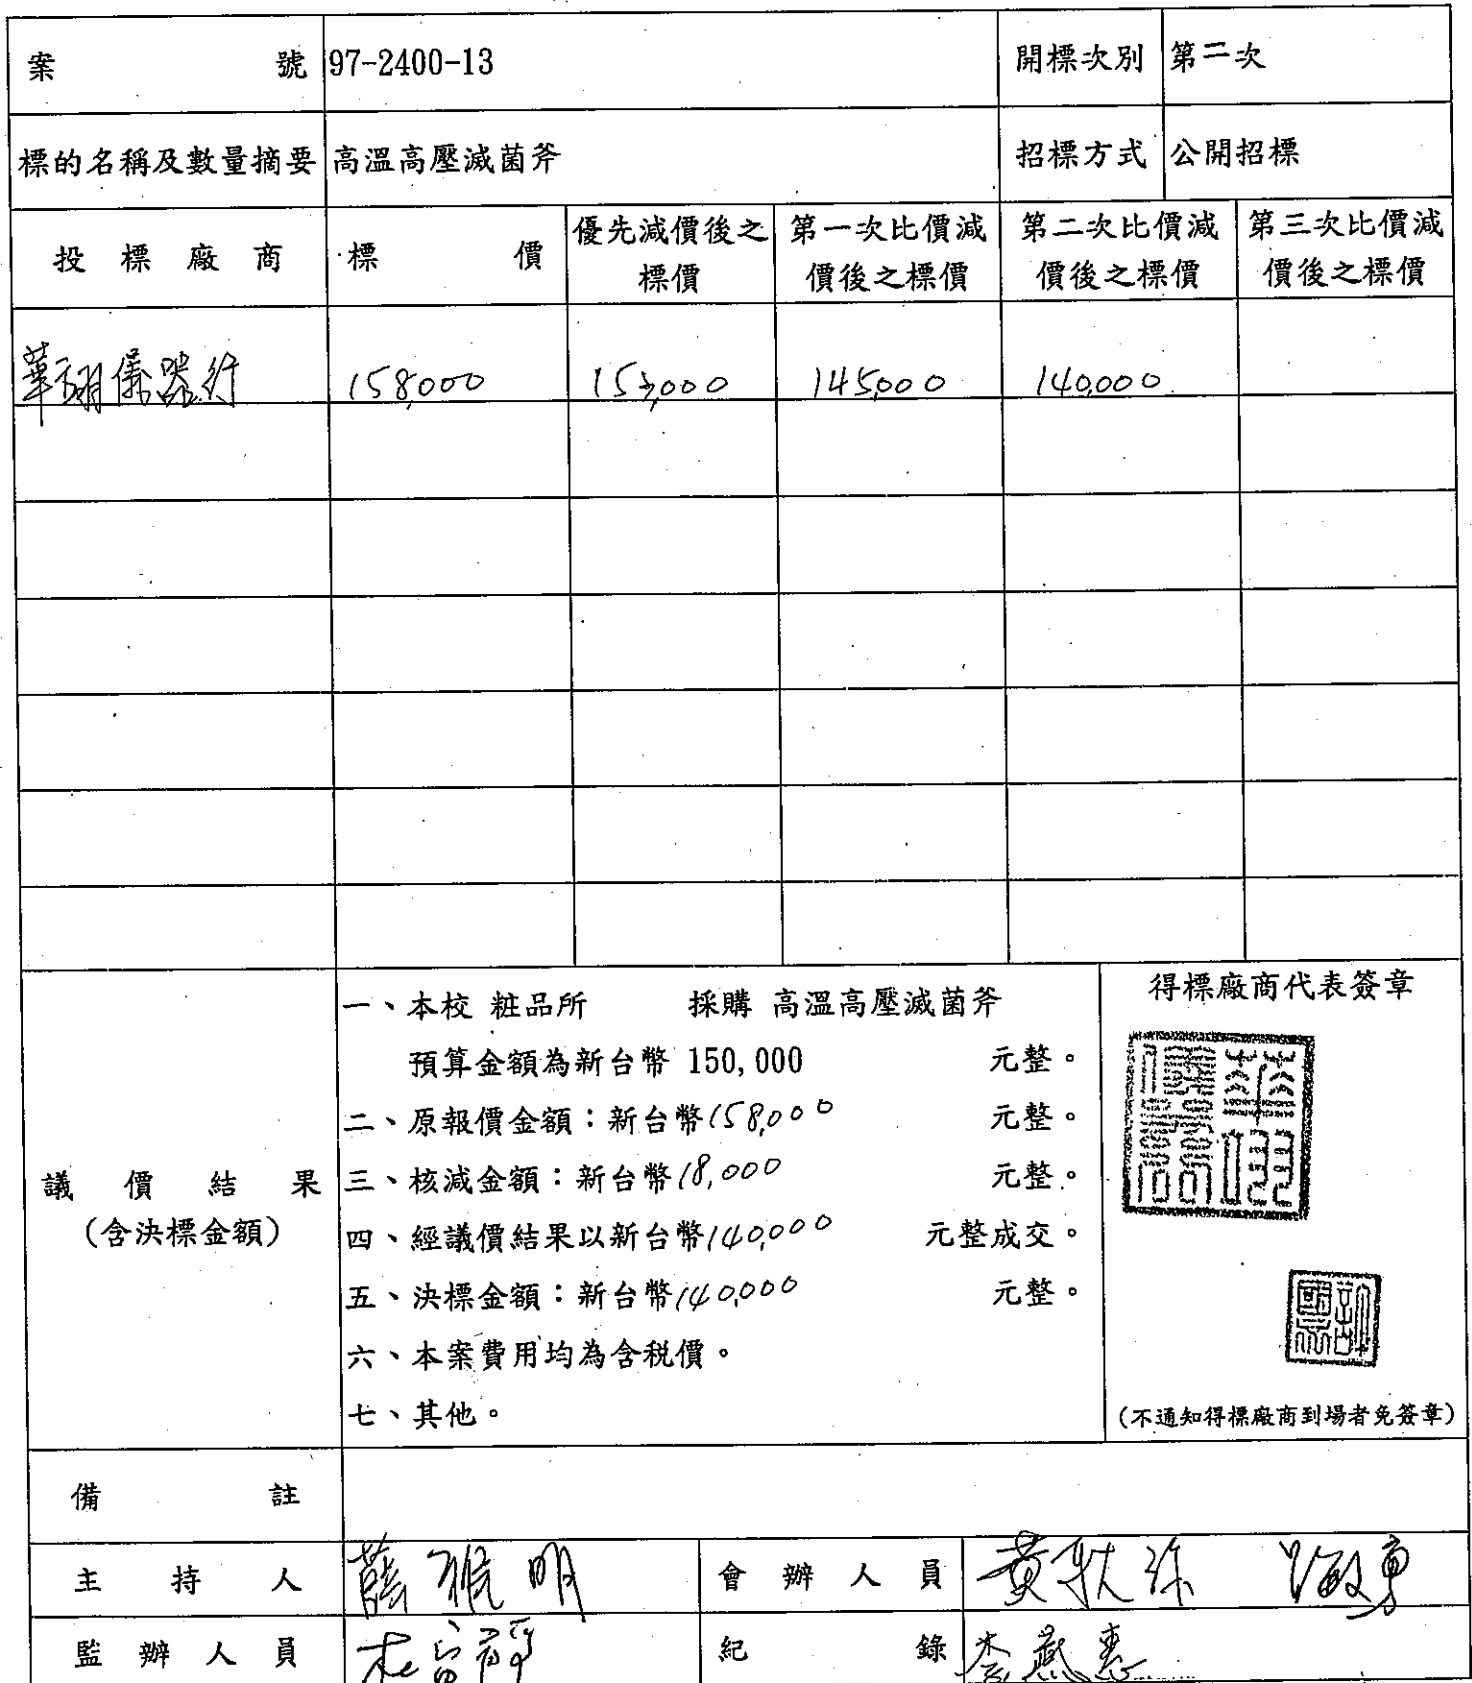 案號 97-2400-13 開標次別 第二次
標的名稱及數量摘要 高溫高壓滅菌斧 招標方式 公開招標
投標廠商 標價 優先減價後之標價 第一次比價減價後之標價 第二次比價減價後之標價 第三次比價減價後之標價
華翊儀器行 158,000 153,000 145,000 140,000
一、本校 粧品所 採購 高溫高壓滅菌斧
預算金額為新台幣 150,000 元整。
二、原報價金額：新台幣158,000 元整。
三、核減金額：新台幣18,000 元整。
四、經議價結果以新台幣140,000 元整成交。
五、決標金額：新台幣140,000 元整。
六、本案費用均為含税價。
七、其他。
議價結果
(含決標金額)
得標廠商代表簽章
(不通知得標廠商到場者免簽章)
備註
主持人 薛雅明 會辦人員
監辦人員 紀錄 李燕惠